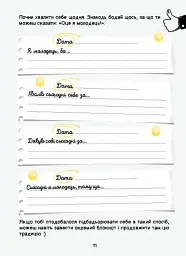 Почни хвалити себе щодня. Знаходь бодай щось, за що ти
можеш сказати: «Оце я молодець!».
Дата
Я молодець, бо...
Дата
Хвалю сьогодні себе за...
Дата
Дякую собі сьогодні за...
Дата
Сьогодні я молодець, тому що...
Якщо тобі сподобалося підбадьорювати себе в такий спосіб,
можеш навіть завести окремий блокнот і продовжити там цю
традицію :)
11